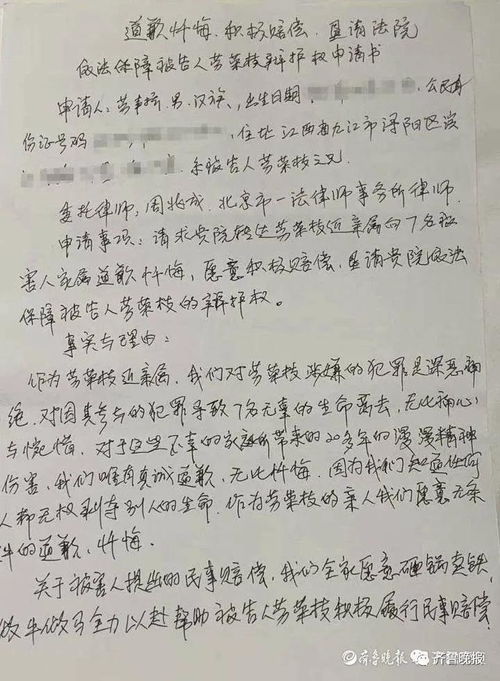 道歉忏悔、积极赔偿、恳请法院
依法保障被告人劳荣枝辩护权申请书
申请人：劳声桥，男，汉族，出生日期，公民身
份证号码，住址江西省九江市浔阳区滨
，系被告人劳荣枝之兄.
委托律师：周兆成，北京市一法律师事务所律师.
申请事项：请求贵院转达劳荣枝近亲属向7名被
害人家属道歉忏悔，愿意积极赔偿，恳请贵院依法
保障被告人劳荣枝的辩护权。
事实与理由：
作为劳荣枝近亲属，我们对劳荣枝涉嫌的犯罪是深恶痛
绝，对因其参与的犯罪导致7名无辜的生命离去，无比痛心
与惋惜，对于这些不幸的家庭所带来的20多年的漫漫精神
伤害，我们唯有真诚道歉，无比忏悔。因为我们知道任何
人都无权剥夺别人的生命.作为劳荣枝的亲人我们愿意无条
件的道歉，忏悔.
关于被害人提出的民事赔偿，我们全家愿意砸锅卖铁，
做牛做马全力以赴帮助被告人劳荣枝积极履行民事赔偿
齐鲁晚报 @齐鲁晚报